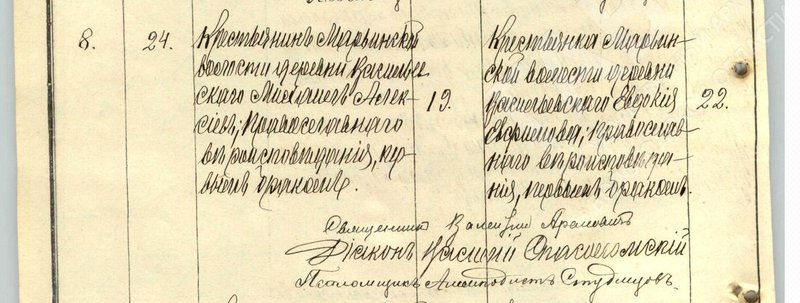 8. 24.
Крестьянинъ Марьинской
волости деревни Василь
скаго Михаилъ Алек-
сѣевъ, православнаго
вѣроисповѣданія, пер-
вымъ бракомъ.
19.
Крестьянка Марьин-
ской волости деревни
Васильевскаго Евдокія
Ефимова, православ-
наго вѣроисповѣда-
нія, первымъ бракомъ.
22.
Священникъ
Діаконъ Василій Спасоломскій
Псаломщикъ Студицовъ